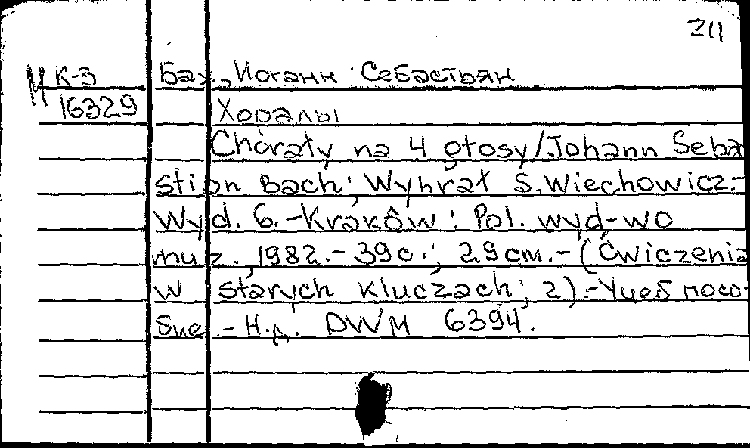 211
М К-3 Бах, Иоганн Себастьян
16329 Хоралы
Chórały na 4 głosy/Johann Seba
stian Bach; Wybrał S. Wiechowicz.-
Wyd. 6.-Kraków: Pol. wyd-wo
muz., 1982.- 39с.; 29см.-(Ćwiczenia
w starych kluczach; 2).-Учеб посо-
бие.-Н.д. DWM 6394.